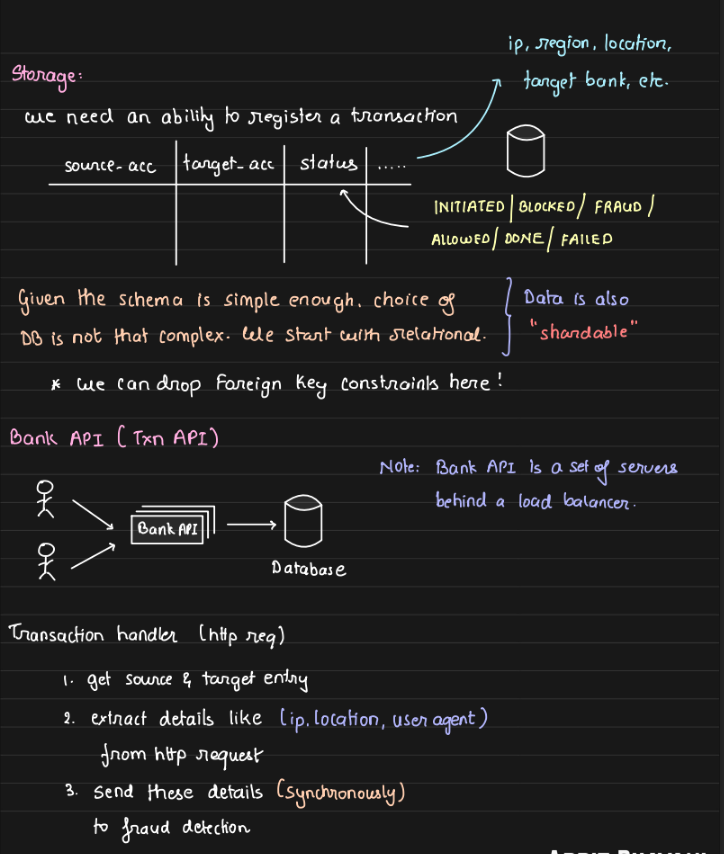 ip, region, location,
target bank, etc.
Storage:
we need an ability to register a transaction
source-acc target-acc status .....
INITIATED | BLOCKED / FRAUD /
ALLOWED / DONE / FAILED
Given the schema is simple enough, choice of
DB is not that complex. We start with relational.
Data is also
"shardable"
* we can drop Foreign Key constraints here!
Bank API (Txn API)
Note: Bank API is a set of servers
behind a load balancer.
Bank API
Database
Transaction handler (http req)
1. get source & target entry
2. extract details like (ip, location, user agent)
from http request
3. send these details (synchronously)
to fraud detection